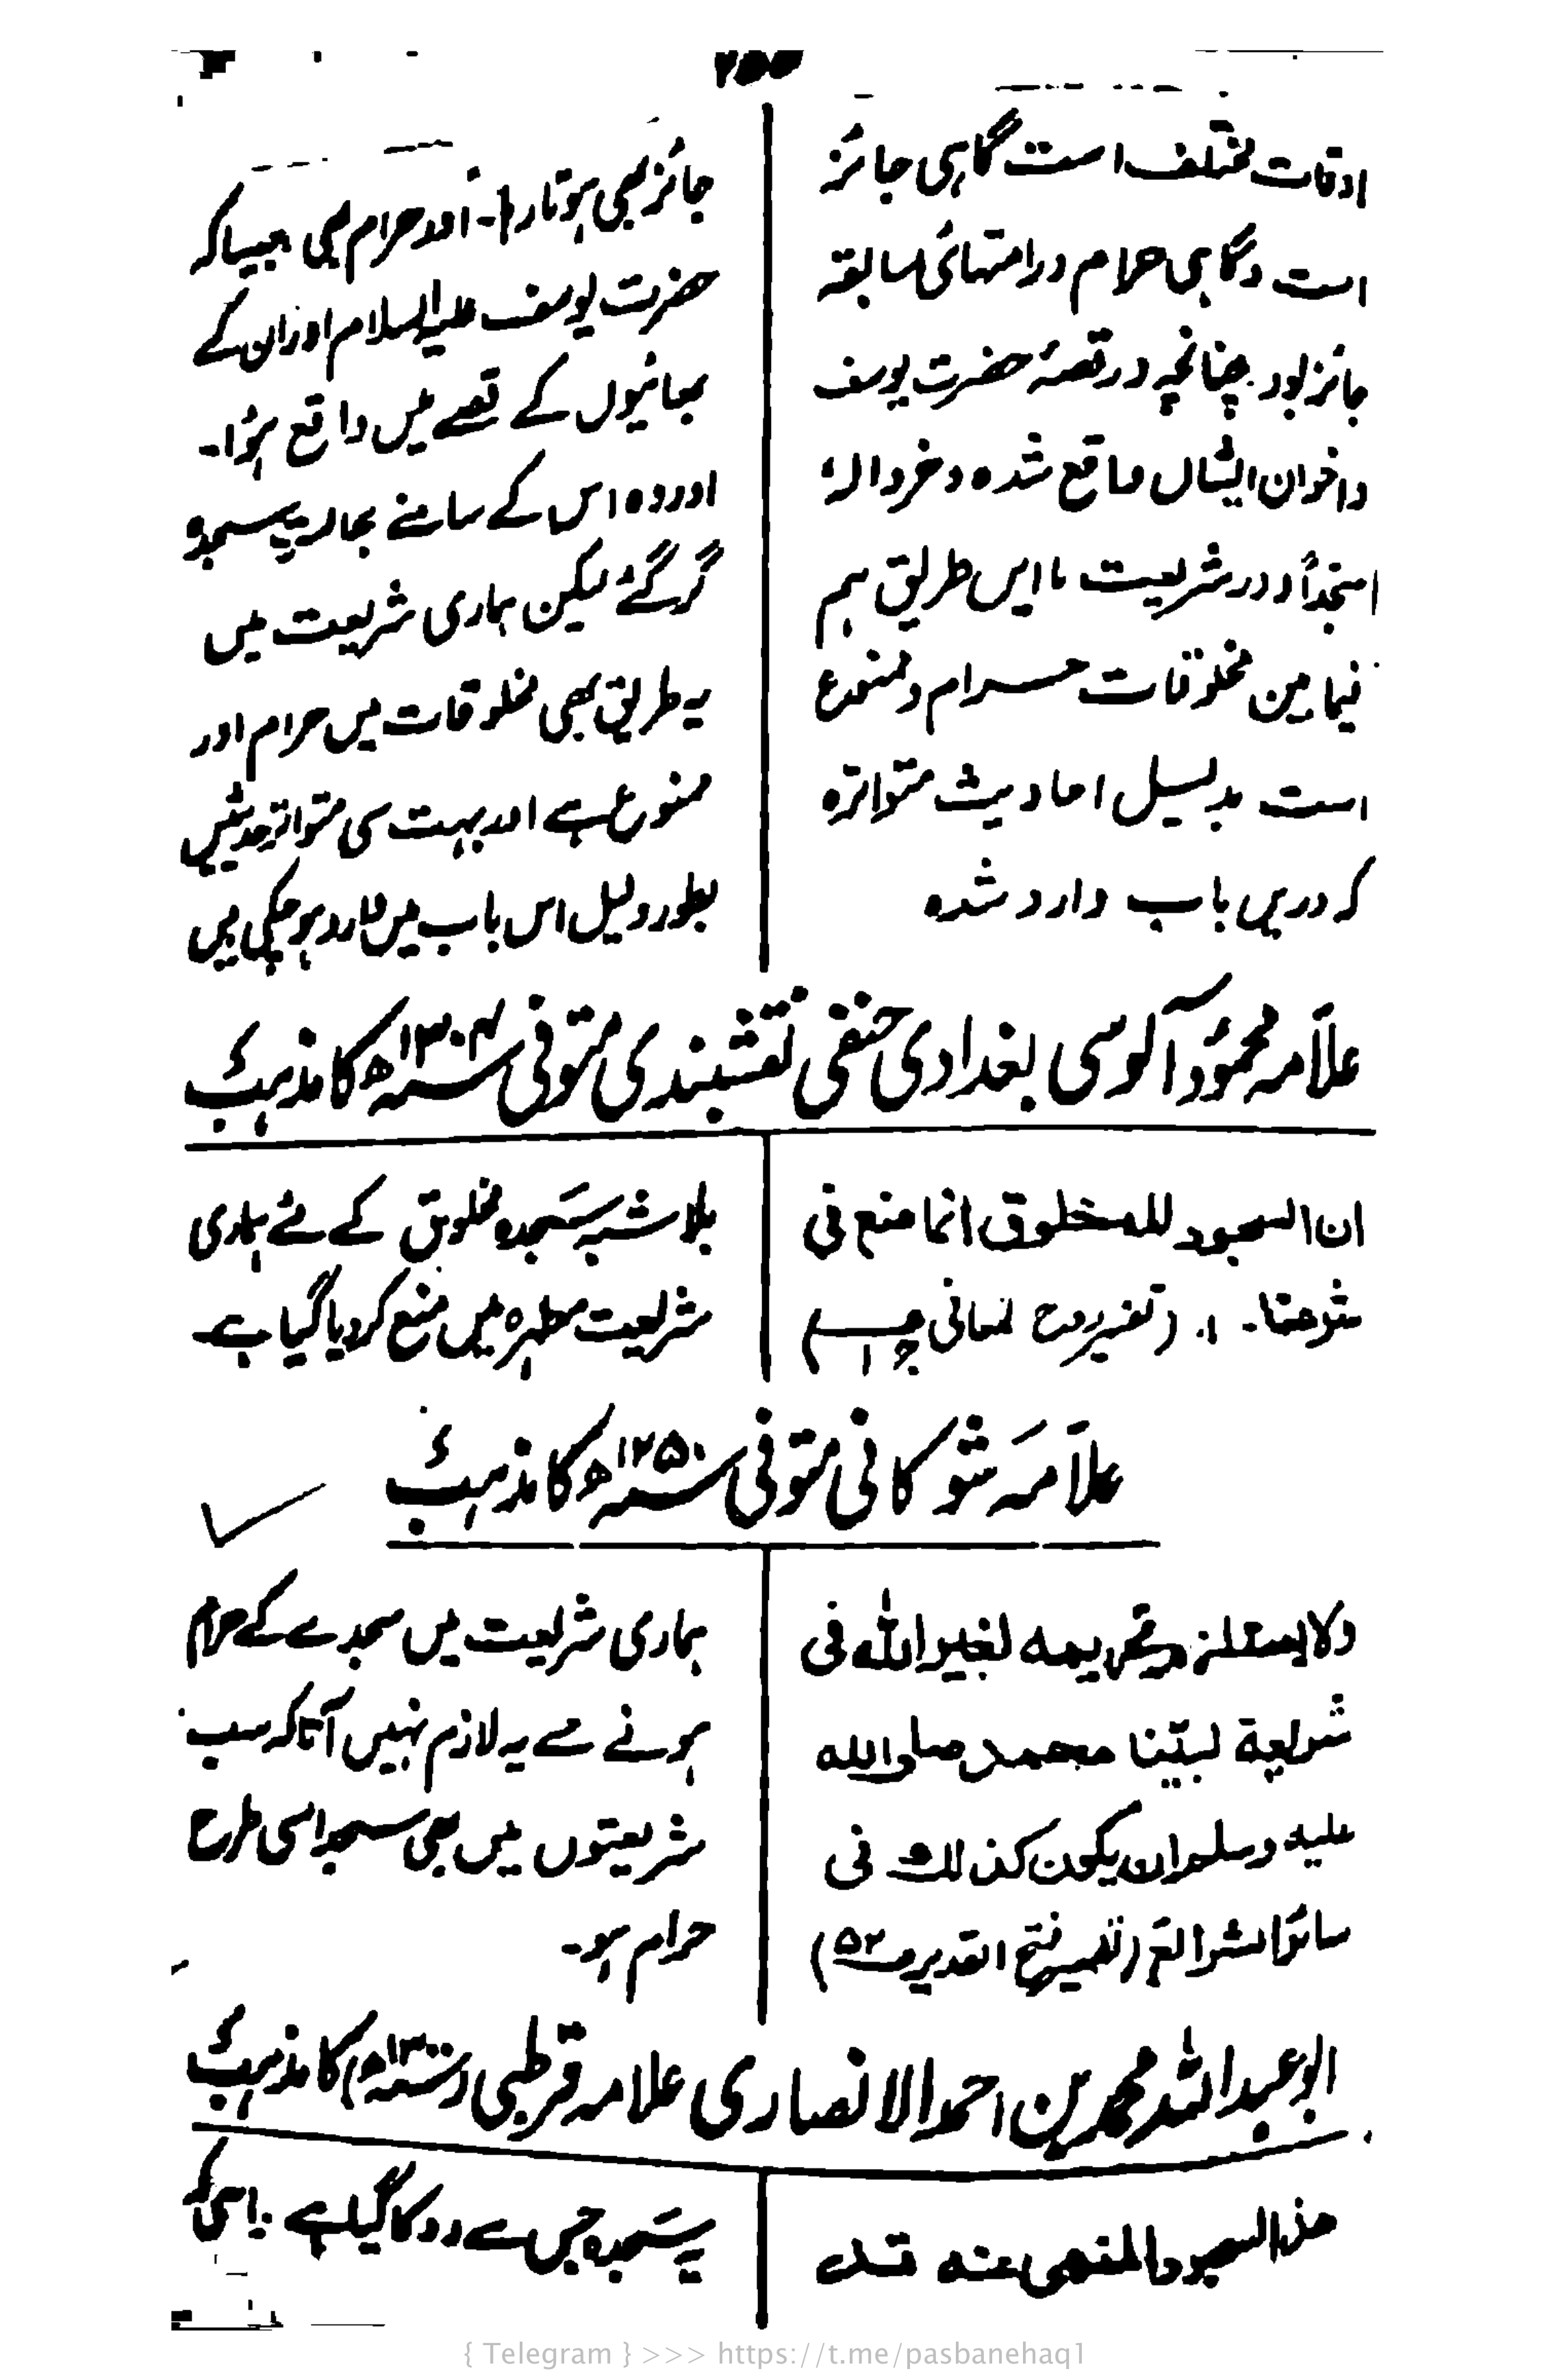 اوقات مختلف است گاہی جائز
است و گاہی حرام درامتہائی سابقہ
جائز بود چنانچہ در قصۂ حضرت یوسف
واخوان ایشاں واقع شدہ وخروا لہ
سجداً و در شریعت ما ایں طریق ہم
فیما بین مخلوقات حرام و ممنوع
است بدلیل احادیث متواترہ
کہ دریں باب وارد شدہ
جائز بھی ہوتا رہا۔ اور حرام بھی جیسا کہ
حضرت یوسف علیہ السلام اور ان کے
بھائیوں کے قصے میں واقع ہؤا۔
اور وہ اس کے سامنے بجالے سجدہ
گر گئے لیکن ہماری شریعت میں
یہ طریق بھی مخلوقات میں حرام اور
ممنوع ہے اور بہت سی متواتر حدیثیں
بطور دلیل اس باب میں وارد ہو چکی ہیں
علّامہ محمود آلوسی بغدادی حنفی نقشبندی متوفی سنہ ۱۳۰۴ھ کا مذہب
ان السجود للمخلوق انما منع فی
شرعنا۔ (تفسیر روح المعانی
بلا شبہ سجدہ مخلوق کے لئے ہماری
شریعت مطہرہ میں منع کر دیا گیا ہے۔
علّامہ شوکانی متوفی سنہ ۱۲۵۰ھ کا مذہب
ولا یستلزم تحریمہ لغیر اللہ فی
شریعة نبیّنا محمد صلی اللہ
علیہ وسلم ان یکون کذلک فی
سائر الشرائع (تفسیر فتح القدیر ص۵۲)
ہماری شریعت میں سجدے کے حرام
ہونے سے یہ لازم نہیں آتا کہ سب
شریعتوں میں بھی سجدہ اسی طرح
حرام ہو۔
ابو عبد اللہ محمد بن احمد الانصاری علامہ قرطبی کا مذہب
ھذا السجود المنھی عنہ قد
یہ سجدہ جس سے روکا گیا ہے
{ Telegram } >>> https://t.me/pasbanehaq1